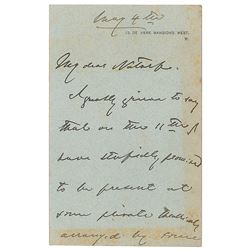 May 4th
15, DE VERE MANSIONS WEST,
W.
My dear
I greatly grieve to say
that on the 11th I
have stupidly promised
to be present at
some private theatricals
arranged by some